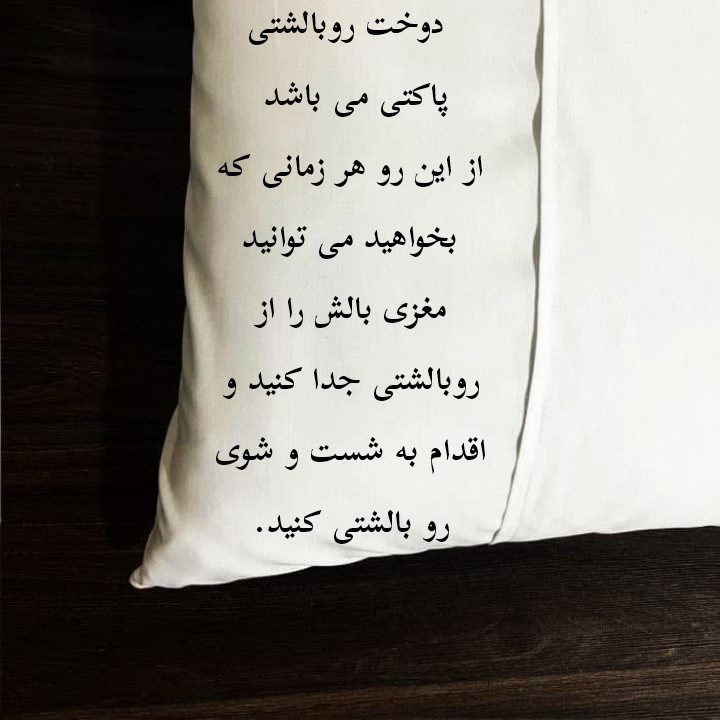 دوخت روبالشتی
پاکتی می باشد
از این رو هر زمانی که
بخواهید می توانید
مغزی بالش را از
روبالشتی جدا کنید و
اقدام به شست و شوی
رو بالشتی کنید.